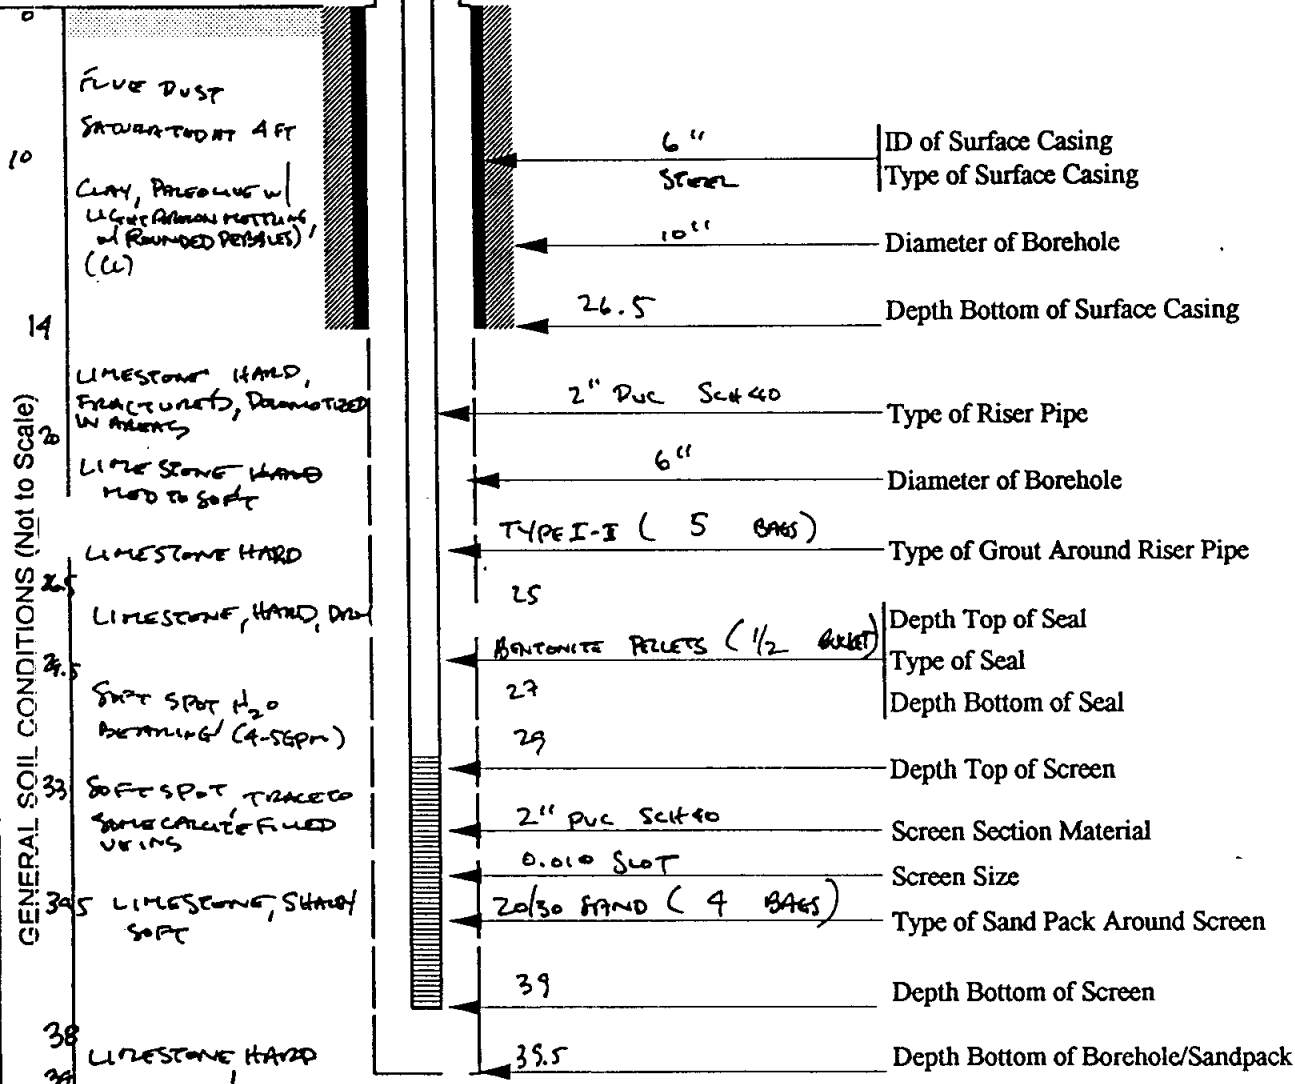 0
FLUE DUST
SATURATED AT 4 FT
10
CLAY, PALE OLIVE W/
LIGHT BROWN MOTTLING,
W/ ROUNDED PEBBLES)
(CL)
14
LIMESTONE HARD,
FRACTURED, DOLOMOTIZED
IN AREAS
20
LIMESTONE HARD
MED TO SOFT
LIMESTONE HARD
26.5
LIMESTONE, HARD, DRY
29.5
SOFT SPOT H2O
(4-5GPM)
33
SOFT SPOT, TRACE TO
SOME CALCITE FILLED
VEINS
LIMESTONE, SHALEY
SOFT
38
LIMESTONE, HARD
39
GENERAL SOIL CONDITIONS (Not to Scale)
6" ID of Surface Casing
STEEL Type of Surface Casing
10" Diameter of Borehole
26.5 Depth Bottom of Surface Casing
2" PVC SCH 40 Type of Riser Pipe
6" Diameter of Borehole
TYPE I-II ( 5 BAGS) Type of Grout Around Riser Pipe
25 Depth Top of Seal
BENTONITE PELLETS (1/2 BUCKET) Type of Seal
27 Depth Bottom of Seal
29 Depth Top of Screen
2" PVC SCH 40 Screen Section Material
0.010 SLOT Screen Size
20/30 SAND ( 4 BAGS) Type of Sand Pack Around Screen
39 Depth Bottom of Screen
39.5 Depth Bottom of Borehole/Sandpack